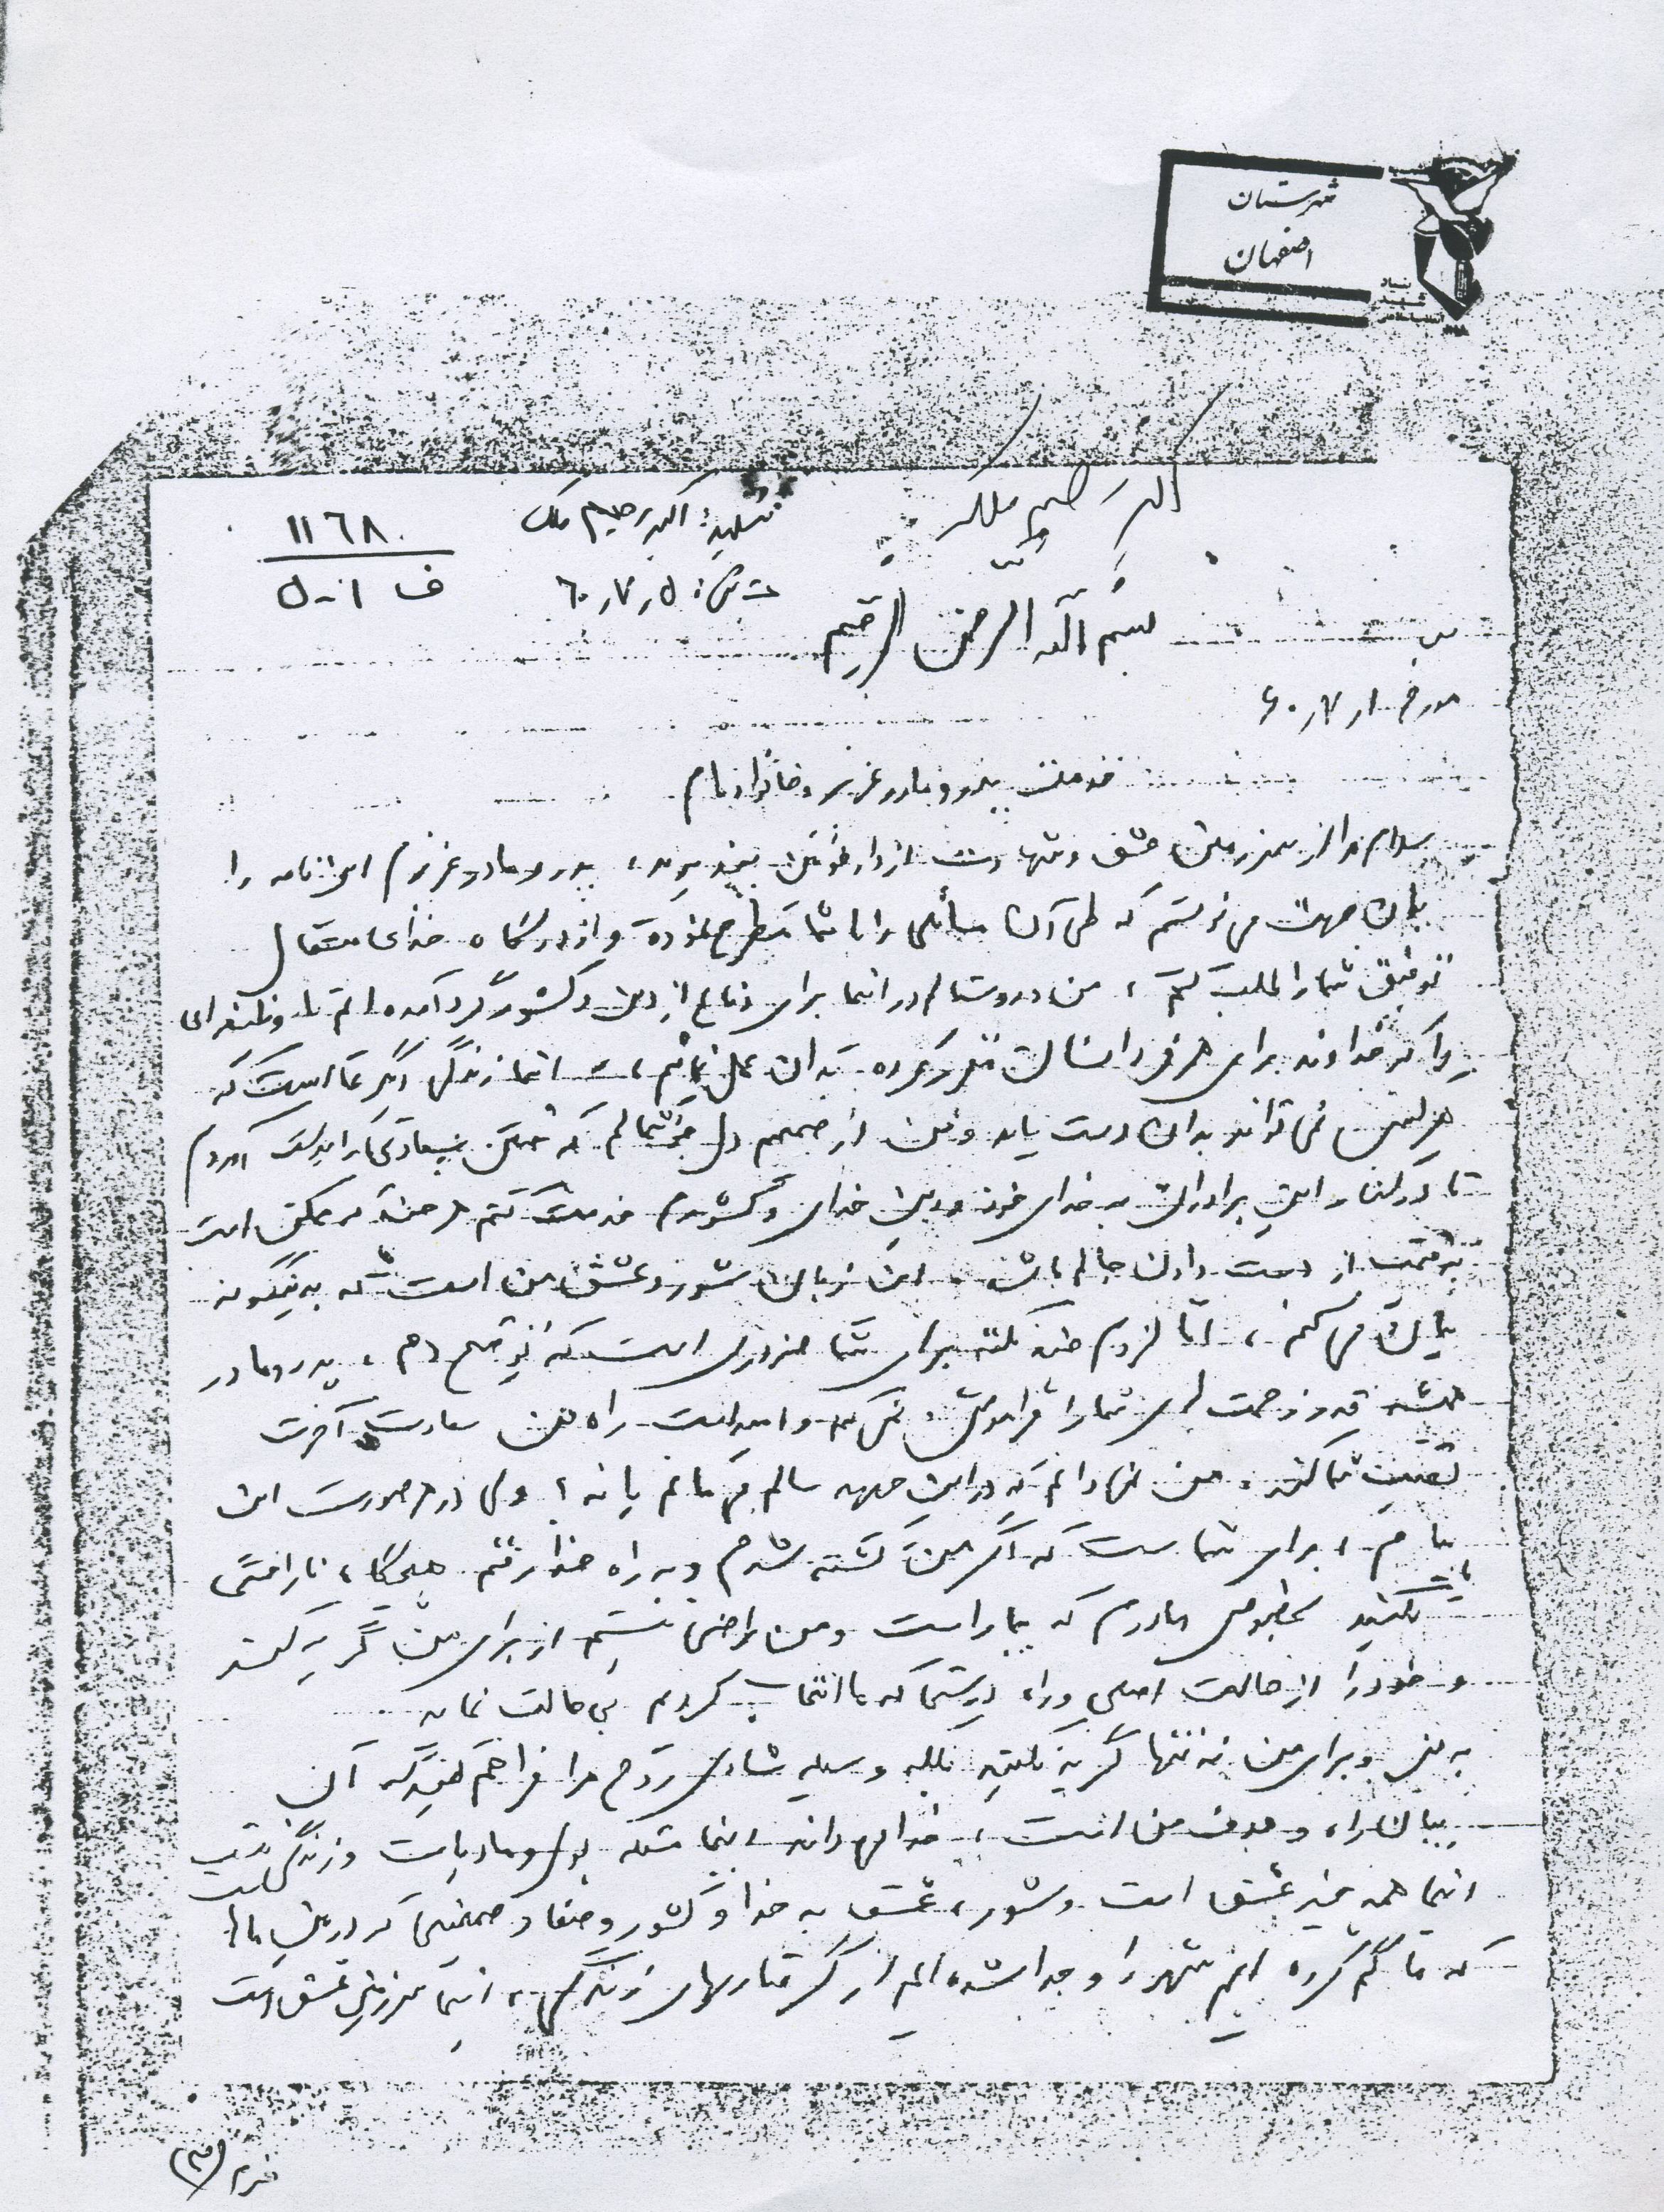 شهرستان
اصفهان
بنیاد
شهید
انقلاب اسلامی
اکبر رحیم ملک
شهید: اکبر رحیم ملک
۱۱۶۸
ت ش: ۶۰/۷/۵
ف ۱-۵
بسم الله الرحمن الرحیم
مورخ ۶۰/۷/۱
خدمت پدر و مادر عزیز و خانواده‌ام
سلام مرا از سرزمین عشق و شهادت از دارخوئین بپذیرید، پدر و مادر عزیزم این نامه را
بدان جهت می نویسم که طی آن مسائلی را با شما مطرح نموده و از درگاه خدای متعال
توفیق شما را طلب کنم، من و دوستانم در اینجا برای دفاع از دین و کشور گرد آمده‌ایم تا وظیفه‌ای
را که خداوند برای هر فرد انسان مقرر کرده بدان عمل نمائیم، اینجا زندگی دیگری است که
هر کس نمی تواند بدان دست یابد و من از صمیم دل خوشحالم که چنین سعادتی را بدست آوردم
تا در کنار این برادران به خدای خود و دین خدای و کشورم خدمت کنم هر چند که ممکن است
به قیمت از دست دادن جانم باشد. این زبان شور و عشق من است که به اینگونه
بیان می کنم، اما لزوم چند نکته برای شما ضروری است که توضیح دهم، پدر و مادر
همیشه قدر زحمت های شما را فراموش نمی کنم و امید است راه من سعادت آخرت
نصیب شما کند. من نمی دانم که در این جبهه سالم می مانم یا نه؟ ولی در هر صورت این
پیام من برای شماست که اگر من کشته شدم و به راه خدا رفتم هیچگاه ناراحتی
نکنید بخصوص مادرم که بیمار است و من راضی نیستم از برای من گریه کند
و خود را از حالت اصلی و راه درستی که ما انتخاب کردیم بی حالت نماید
و برای من نه تنها گریه نکنید بلکه وسیله شادی روح مرا فراهم کنید که آن
بیان راه و هدف من است، خدا می داند اینجا نه پول و مادیات و زندگی نیست
اینجا همه چیز عشق است و شور، عشق به خدا و کشور و صفا و صمیمیتی که در بین ماها
که ما گم کرده ایم شهر را و جدا شده ایم از گرفتاریهای زندگی، اینجا سرزمین عشق است